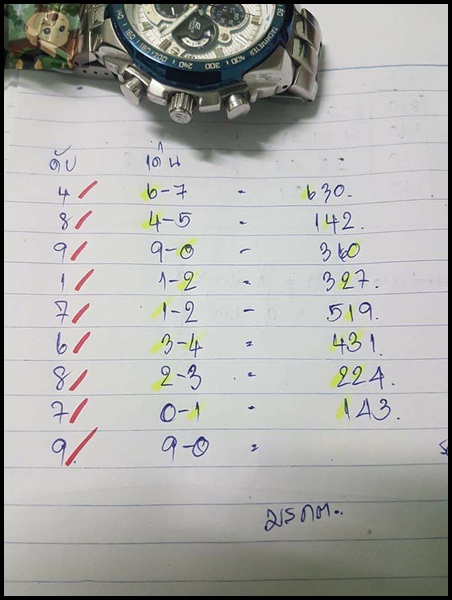 TACHYMETER 500 400 300 240 200
ดับ เด่น
4 / 6-7 - 630.
8 / 4-5 = 142.
9 / 9-0 - 360
1 / 1-2 = 327.
7 / 1-2 - 519.
6 / 3-4 = 431.
8 / 2-3 = 224.
7 / 0-1 - 143.
9 / 9-0 =
มรกต.